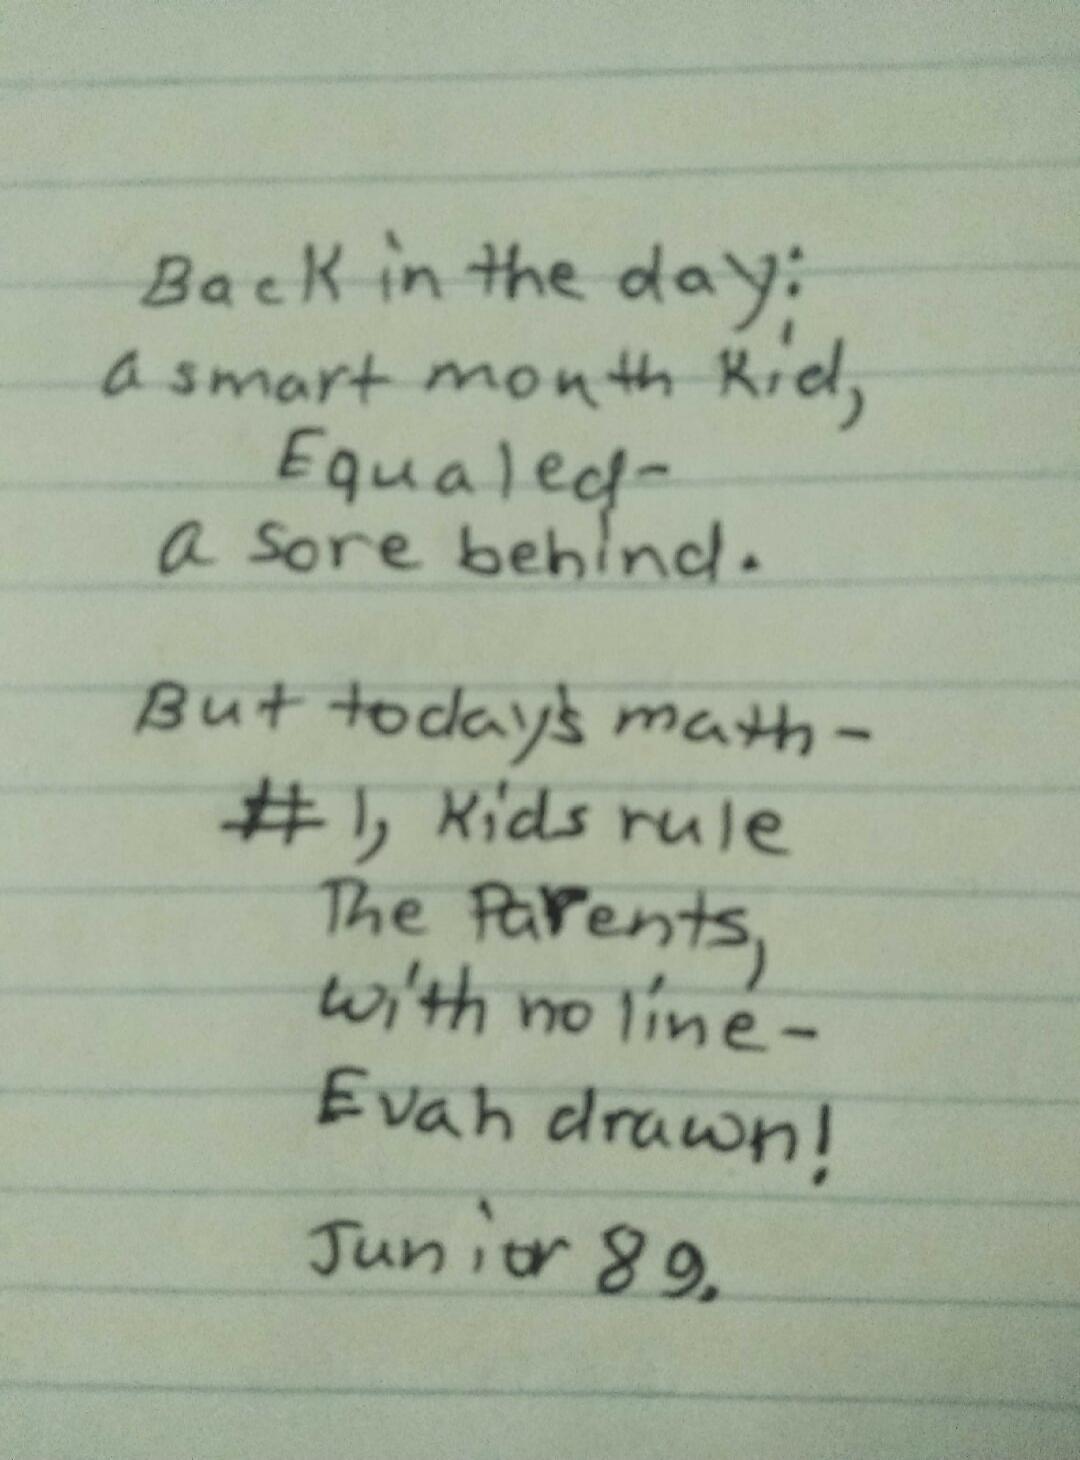 Back in the day:
a smart mouth kid,
Equaled-
a sore behind.
But today's math-
#1, kids rule
The Parents,
with no line-
Evah drawn!
Junior 89.